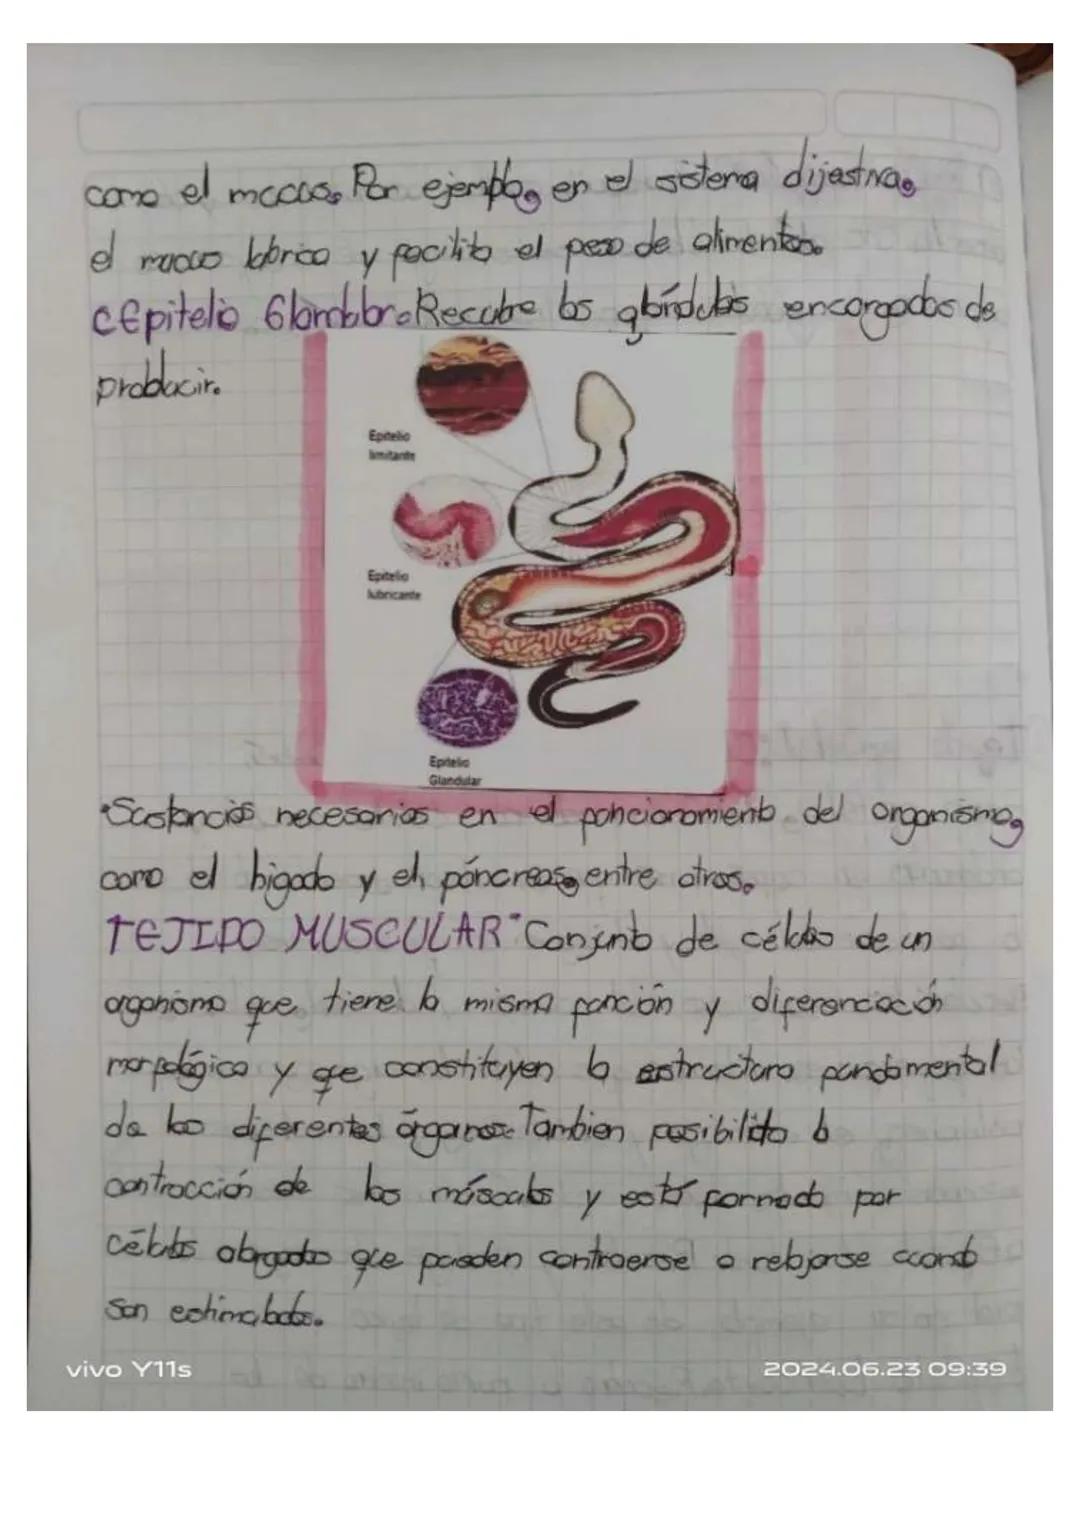 como el mocos. Por ejemplo, en el sistema dijestiva,
el moco lubrica y facilita el paso de alimentos.
c Epitelio Glandular. Recubre las glándulas encargadas de
producir.
Epitelio
limitante
Epitelio
lubricante
Epitelio
Glandular
•Sustancias necesarias en el funcionamiento del organismo,
como el higado y el páncreas, entre otros.
TEJIDO MUSCULAR• Conjunto de células de un
organismo que tiene la misma función y diferenciación
morfológica y que constituyen la estructura fundamental
de los diferentes órganos. Tambien posibilita la
contracción de los músculos y está formado por
células alargadas que pueden contraerse o relajarse cuando
son estimuladas.
vivo Y11s
2024.06.23 09:39